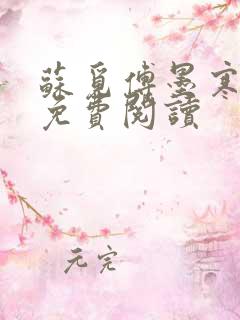 蘇覓傅墨寒
免費閱讀
元完